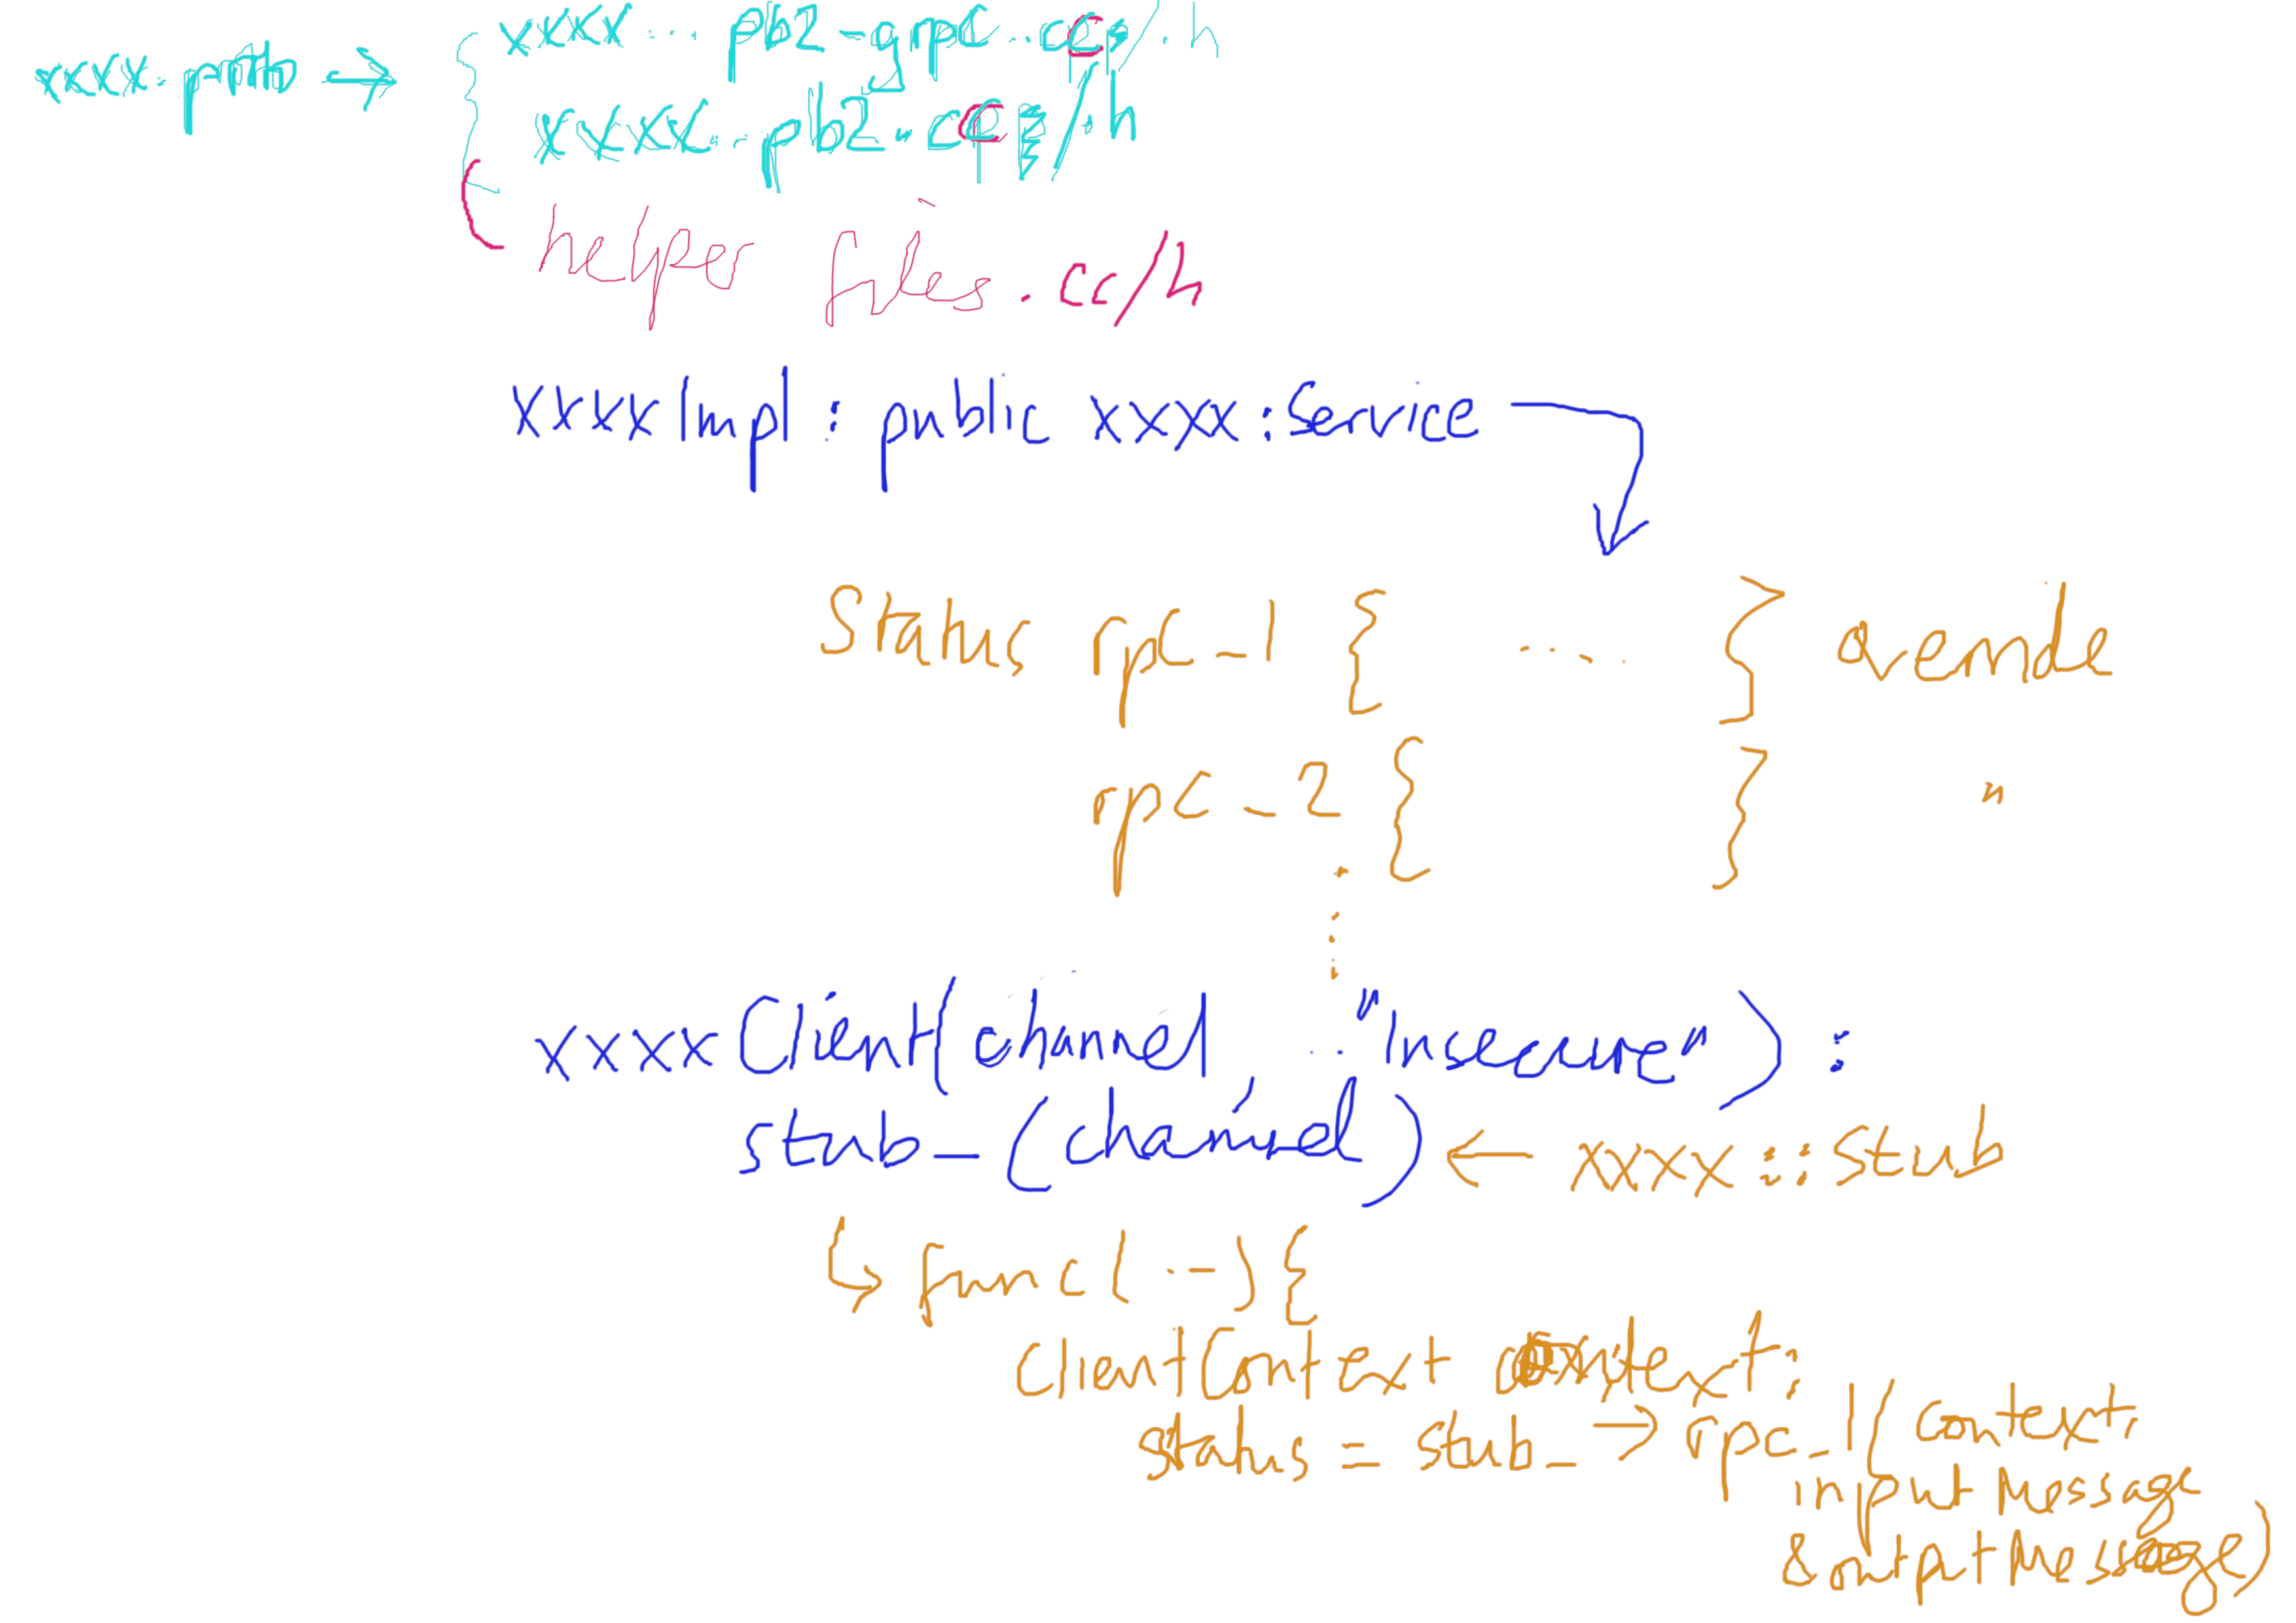 xxxx.proto → { xxxx....pb2-grpc..cc/.h
xxxx...pb2.cc/.h
helper files.cc/h
xxxxImpl : public xxxx:Service
Status rpc-1 { .... } override
rpc-2 { } "
xxxxClient(channel .. "Insecure") :
stub_(channel) ← xxxx::stub
↳ func(..-){
ClientContext context;
status = stub_ → rpc_1( context,
input Message
&outptMessage)